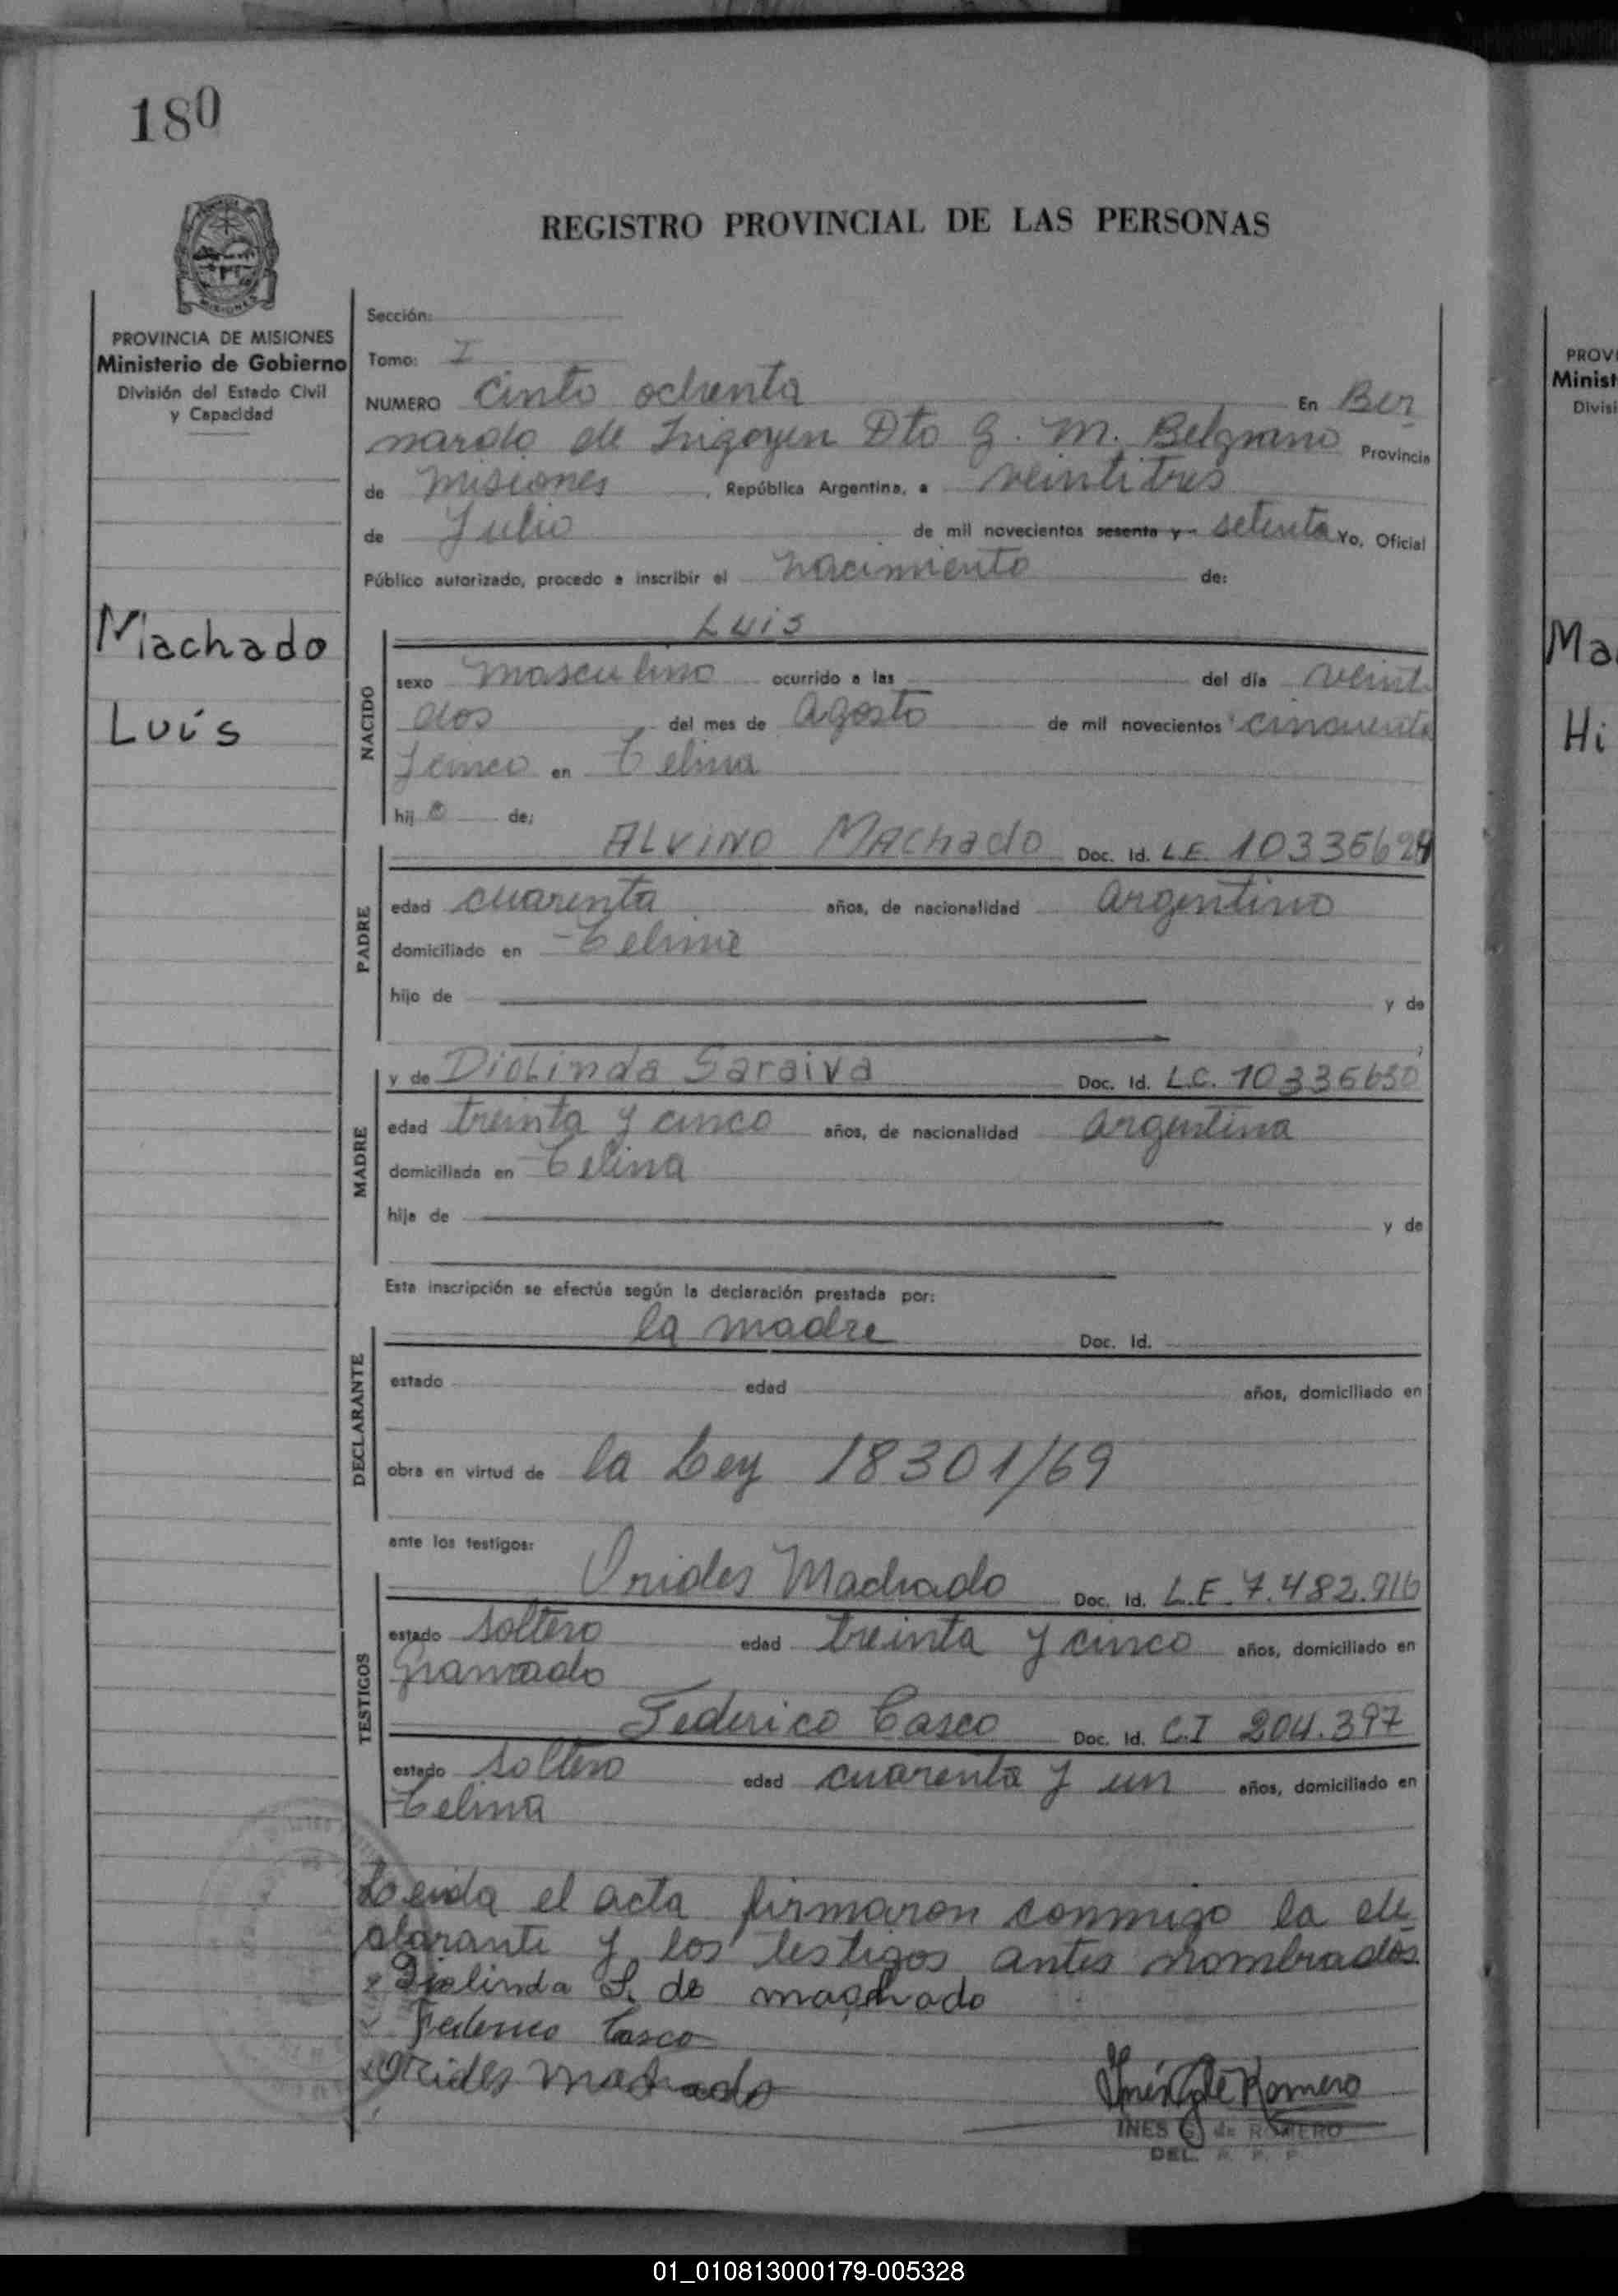 180
REGISTRO PROVINCIAL DE LAS PERSONAS
MISIONES
PROVINCIA DE MISIONES
Ministerio de Gobierno
División del Estado Civil
y Capacidad
Machado
Luis
Sección:
Tomo: I
NUMERO Cinto ochenta En Ber
nardo de Irigoyen Dto G. M. Belgrano Provincia
de Misiones, República Argentina, a veintitres
de Julio de mil novecientos sesenta y setenta Yo, Oficial
Público autorizado, procedo a inscribir el nacimiento de:
Luis
NACIDO
sexo masculino ocurrido a las del día veinti
dos del mes de Agosto de mil novecientos cincuenta
y cinco en Celina
hij o de:
PADRE
ALVINO MAChado Doc. Id. L.E.
edad cuarenta años, de nacionalidad argentino
domiciliado en Celina
hijo de y de
MADRE
y de Diolinda Saraiva Doc. Id. L.C. 10336630
edad treinta y cinco años, de nacionalidad argentina
domiciliada en Celina
hija de y de
Esta inscripción se efectúa según la declaración prestada por:
DECLARANTE
la madre Doc. Id.
estado edad años, domiciliado en
obra en virtud de la Ley 18301/69
ante los testigos:
TESTIGOS
Orides Machado Doc. Id. L.E. 7.482.916
estado soltero edad treinta y cinco años, domiciliado en
Gramado
Federico Casco Doc. Id. C.I 204.397
estado soltero edad cuarenta y un años, domiciliado en
Celina
Leida el acta firmaron conmigo la de
clarante y los testigos antes nombrados.
Diolinda S. de machado
Federico Casco
Orides Machado
Inés G de Romero
INES G de ROMERO
DEL. R. P. P
PROVI
Minist
Divisi
Ma
Hi
01_010813000179-005328